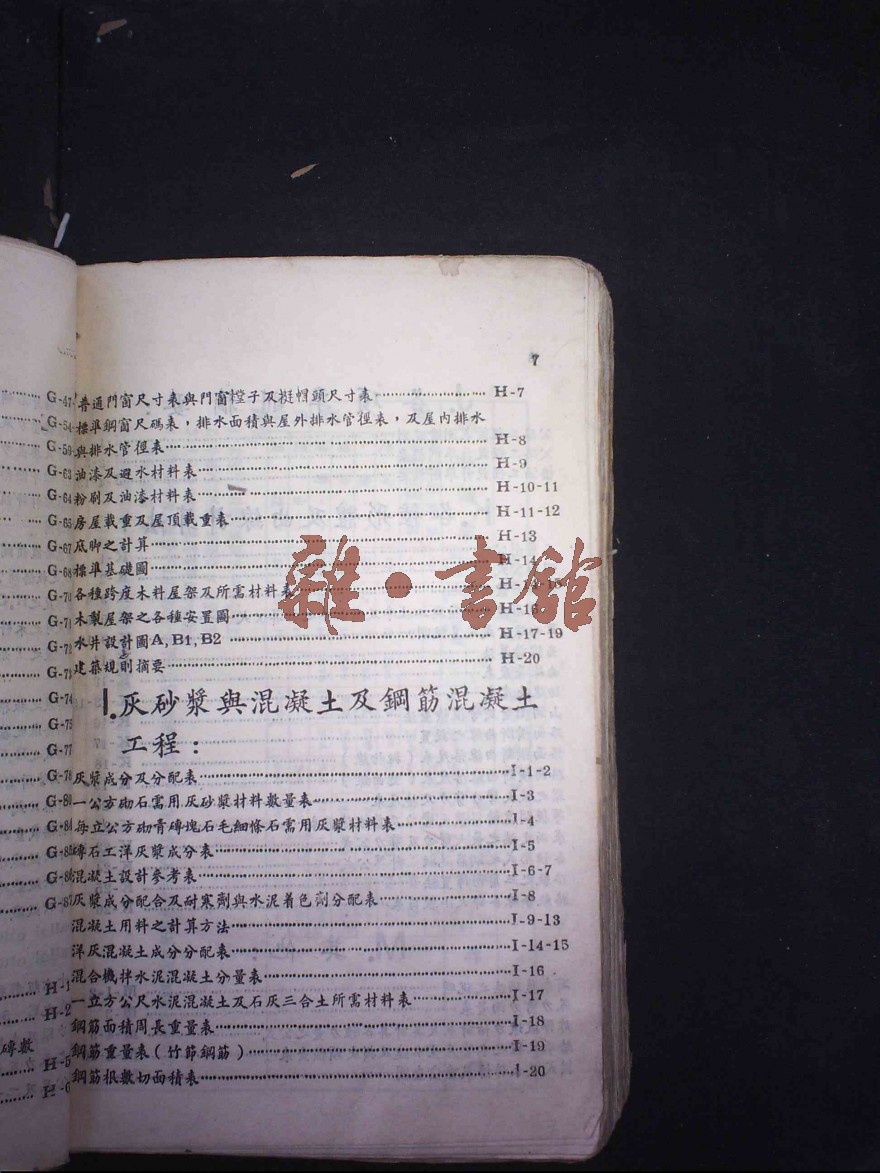 7
普通門窗尺寸表與門窗樘子及挺帽頭尺寸表 H-7
標準鋼窗尺碼表，排水面積與屋外排水管徑表，及屋內排水
與排水管徑表 H-8
油漆及避水材料表 H-9
粉刷及油漆材料表 H-10-11
房屋載重及屋頂載重表 H-11-12
底脚之計算 H-13
標準基礎圖 H-14
各種跨度木料屋架及所需材料表
木製屋架之各種安置圖 H-16
水井設計圖A, B1, B2 H-17-19
建築規則摘要 H-20
I. 灰砂漿與混凝土及鋼筋混凝土
工程：
灰漿成分及分配表 I-1-2
一公方砌石需用灰砂漿材料數量表 I-3
每立公方砌青磚塊石毛細條石需用灰漿材料表 I-4
磚石工洋灰漿成分表 I-5
混凝土設計參考表 I-6-7
灰漿成分配合及耐寒劑與水泥着色劑分配表 I-8
混凝土用料之計算方法 I-9-13
洋灰混凝土成分分配表 I-14-15
混合機拌水泥混凝土分量表 I-16
一立方公尺水泥混凝土及石灰三合土所需材料表 I-17
鋼筋面積周長重量表 I-18
鋼筋重量表（竹節鋼筋） I-19
鋼筋根數切面積表 I-20
G-47
G-54
G-59
G-63
G-64
G-65
G-67
G-68
G-70
G-71
G-72
G-73
G-74
G-75
G-77
G-78
G-80
G-84
G-85
G-86
G-87
H-1
H-2
磚數
H-5
H-6
雜·書館